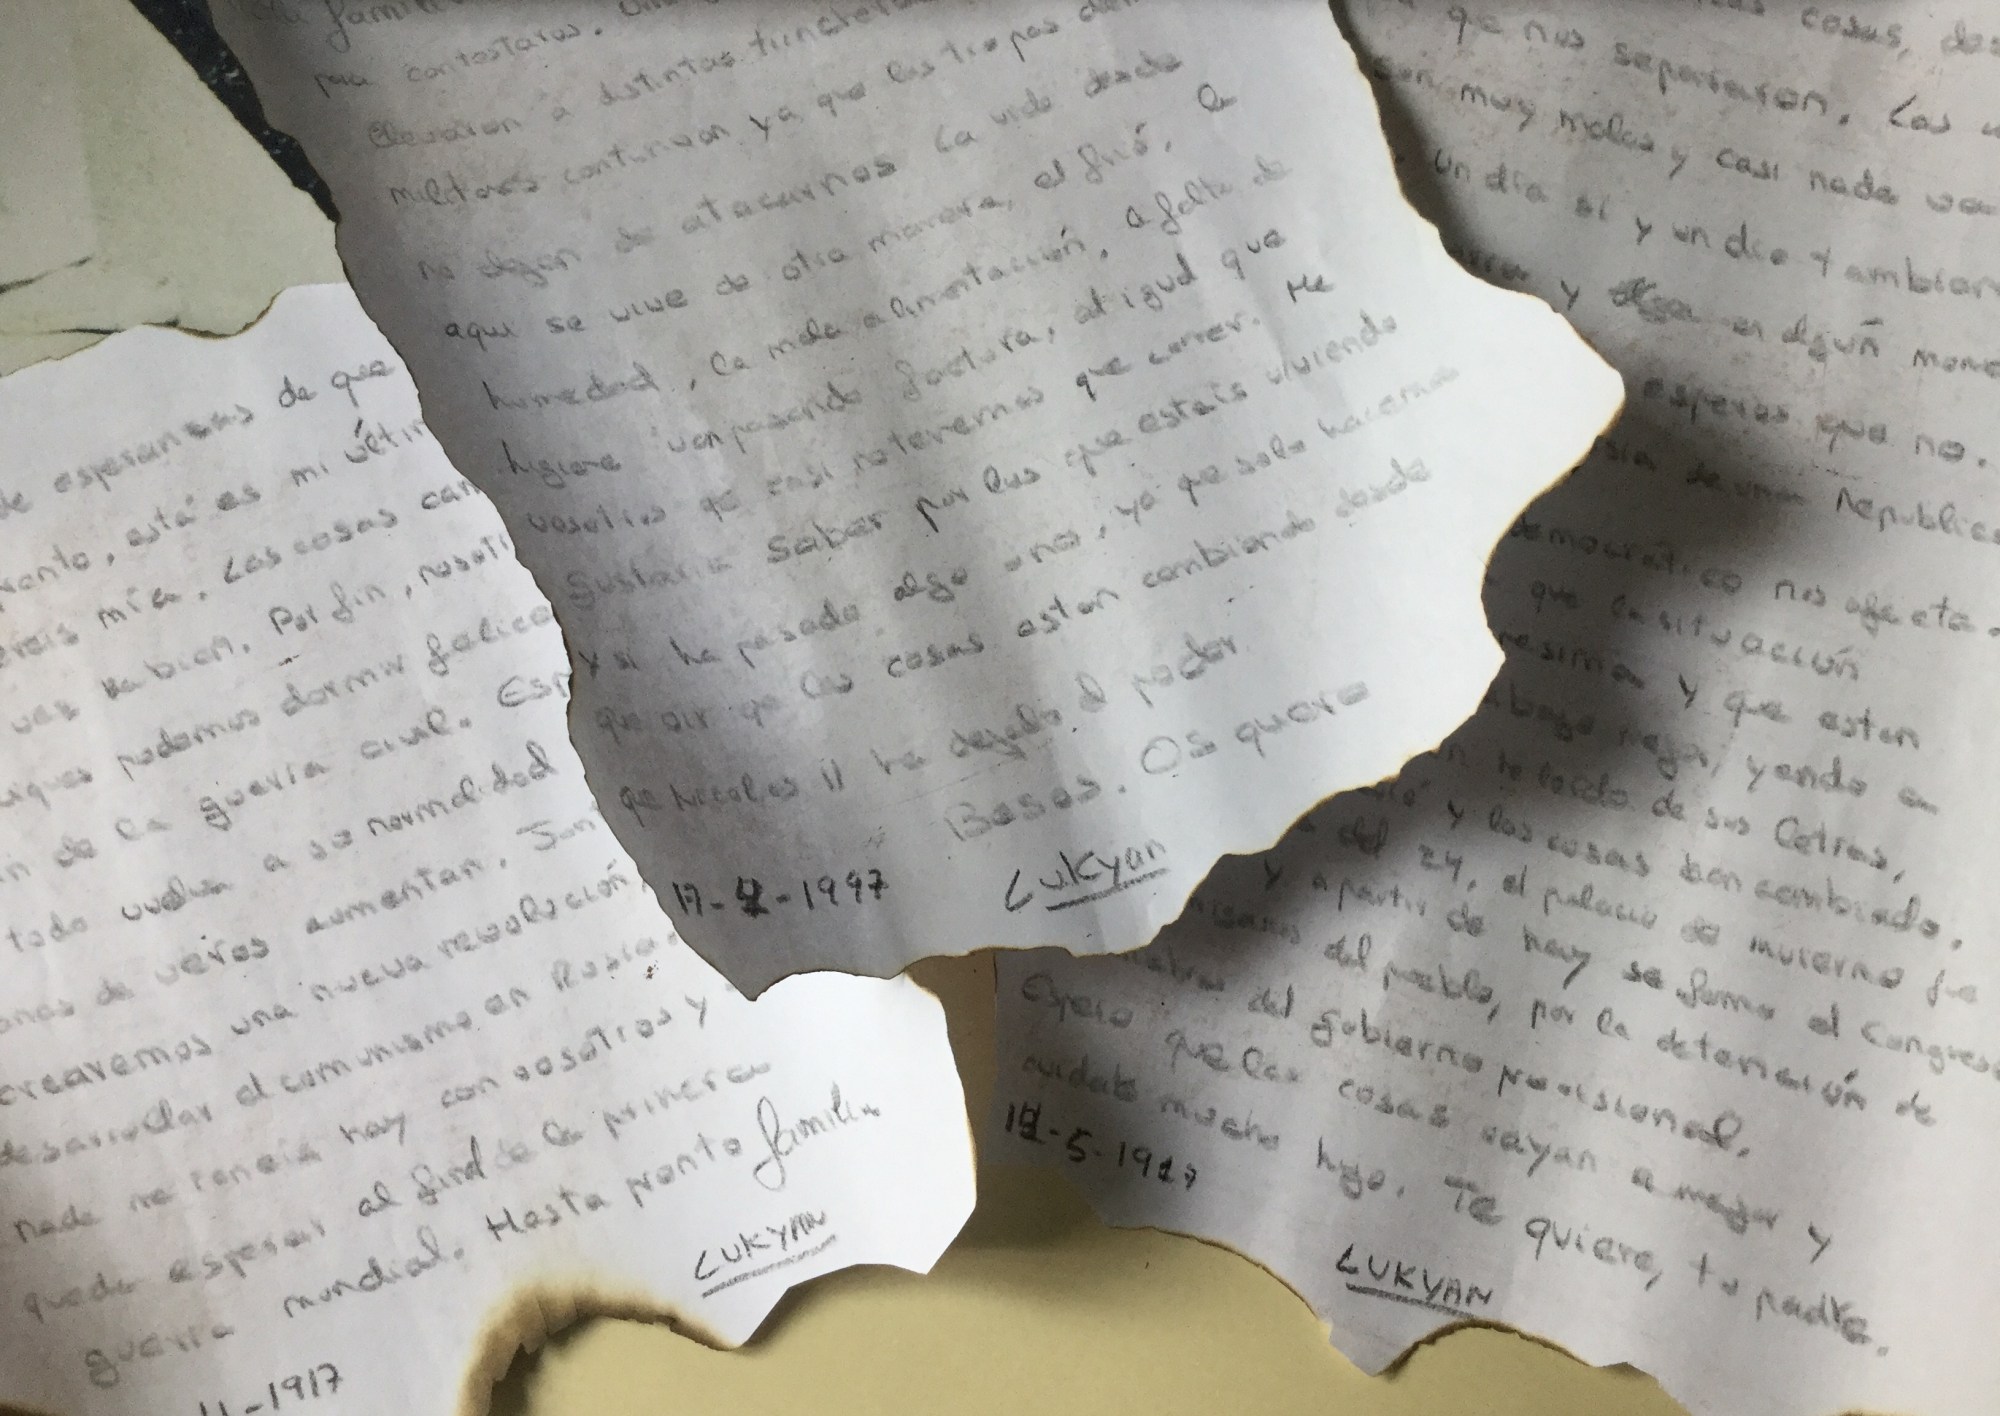 para contestaros.
llevaron a distintas trincheras
militares continuan ya que las tropas
no dejan de atacarnos la vida desde
aqui se vive de otra manera, el frió, la
humedad, la mala alimentación, a falta de
higiene van pasando factura, al igual que
vosotros que casi no teneremos que comer. Me
Gustaria Saber por los que estais viviendo
y si ha pasado algo o no, ya que solo hacemos
que oir que las cosas estan cambiando desde
que Nicolas II ha dejado el poder
Besos. Os quiero
Lukyan
de esperansas de que
pronto, está es mi últim
ereis mía. Las cosas cam
ues va bien. Por fin, nosotr
rques podemos dormir felices
n de la guerra civil. Esp
todo vuelva a so normalidad
anas de veros aumentan. Jun
crearemos una nueva revolución,
desarrollar el comunismo en Rusia
nada me tencia hay con vosotros y
queda esperar al final de la primera
guerra mundial. Hasta pronto familia
LUKYAN
11-1917
cosas, des
que nos separaron. Las
son muy malas y casi nada va
un día si y un dia tambien
y en algún mome
esperos que no.
sia de una Republica
democrático nos afecta.
que la situación
resima y que estan
abajo mejor, yendo en
n te leido de sus letras,
y las cosas ban cambiado.
del 24, el palacio de invierno fue
y apartir de hay se formo el Congreso
misarios del pueblo, por la detención de
miembros del gobierno provisional.
Espero que las cosas vayan a mejor y
cuidate mucho hijo. Te quiere, tu padre.
LUKYAN